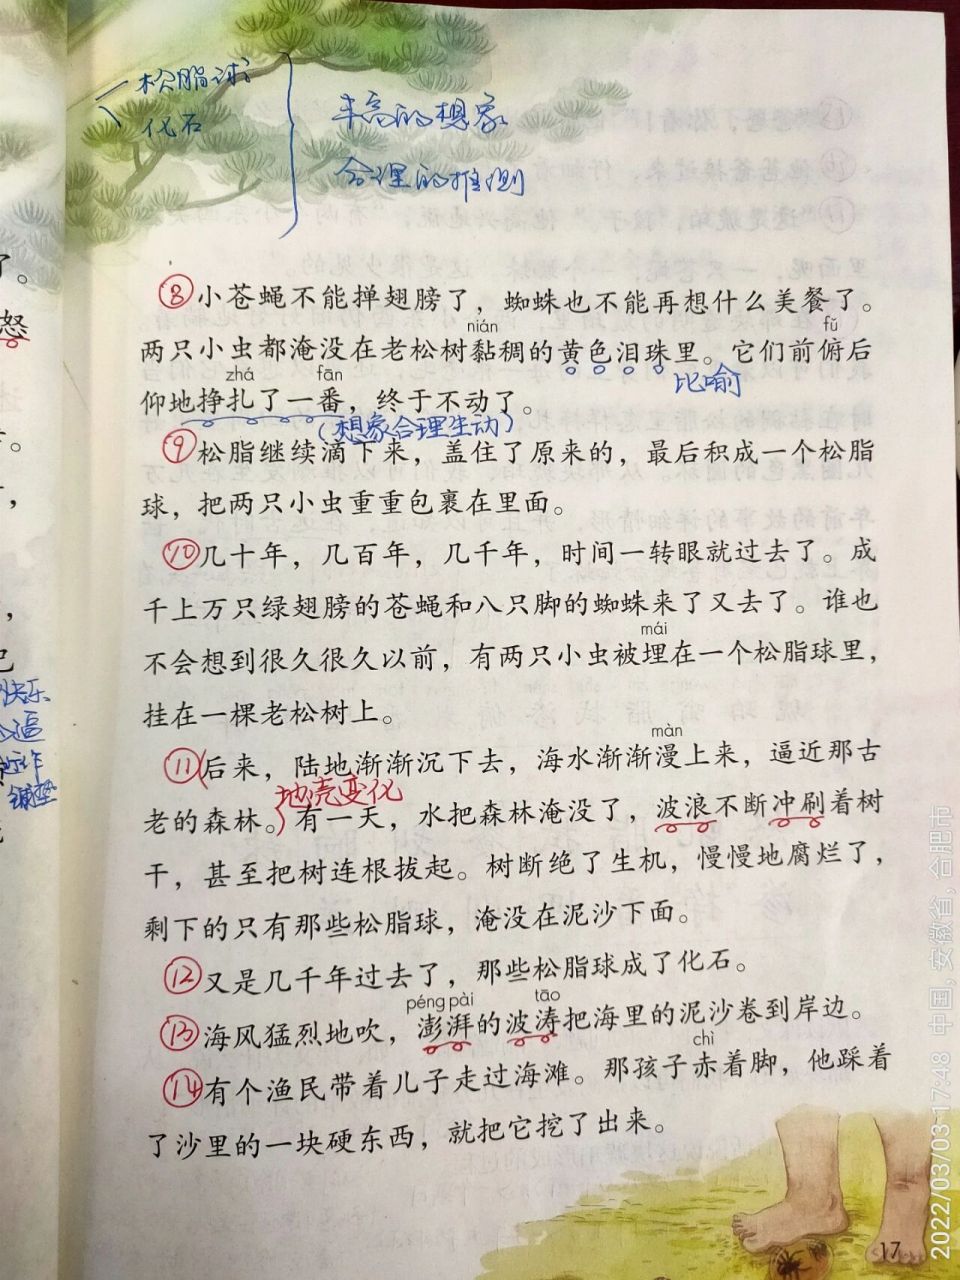 松脂球
化石
丰富的想象
合理的推测
⑧小苍蝇不能掸翅膀了，蜘蛛也不能再想什么美餐了。
nián fǔ
两只小虫都淹没在老松树黏稠的黄色泪珠里。它们前俯后
zhá fān 比喻
仰地挣扎了一番，终于不动了。
（想象合理生动）
⑨松脂继续滴下来，盖住了原来的，最后积成一个松脂
球，把两只小虫重重包裹在里面。
⑩几十年，几百年，几千年，时间一转眼就过去了。成
千上万只绿翅膀的苍蝇和八只脚的蜘蛛来了又去了。谁也
mái
不会想到很久很久以前，有两只小虫被埋在一个松脂球里，
挂在一棵老松树上。
màn
⑪（后来，陆地渐渐沉下去，海水渐渐漫上来，逼近那古
地壳变化
老的森林。）有一天，水把森林淹没了，波浪不断冲刷着树
干，甚至把树连根拔起。树断绝了生机，慢慢地腐烂了，
剩下的只有那些松脂球，淹没在泥沙下面。
⑫又是几千年过去了，那些松脂球成了化石。
péng pài tāo
⑬海风猛烈地吹，澎湃的波涛把海里的泥沙卷到岸边。
chì
⑭有个渔民带着儿子走过海滩。那孩子赤着脚，他踩着
了沙里的一块硬东西，就把它挖了出来。
17
2022/03/03 17:48 中国，安徽省，合肥市